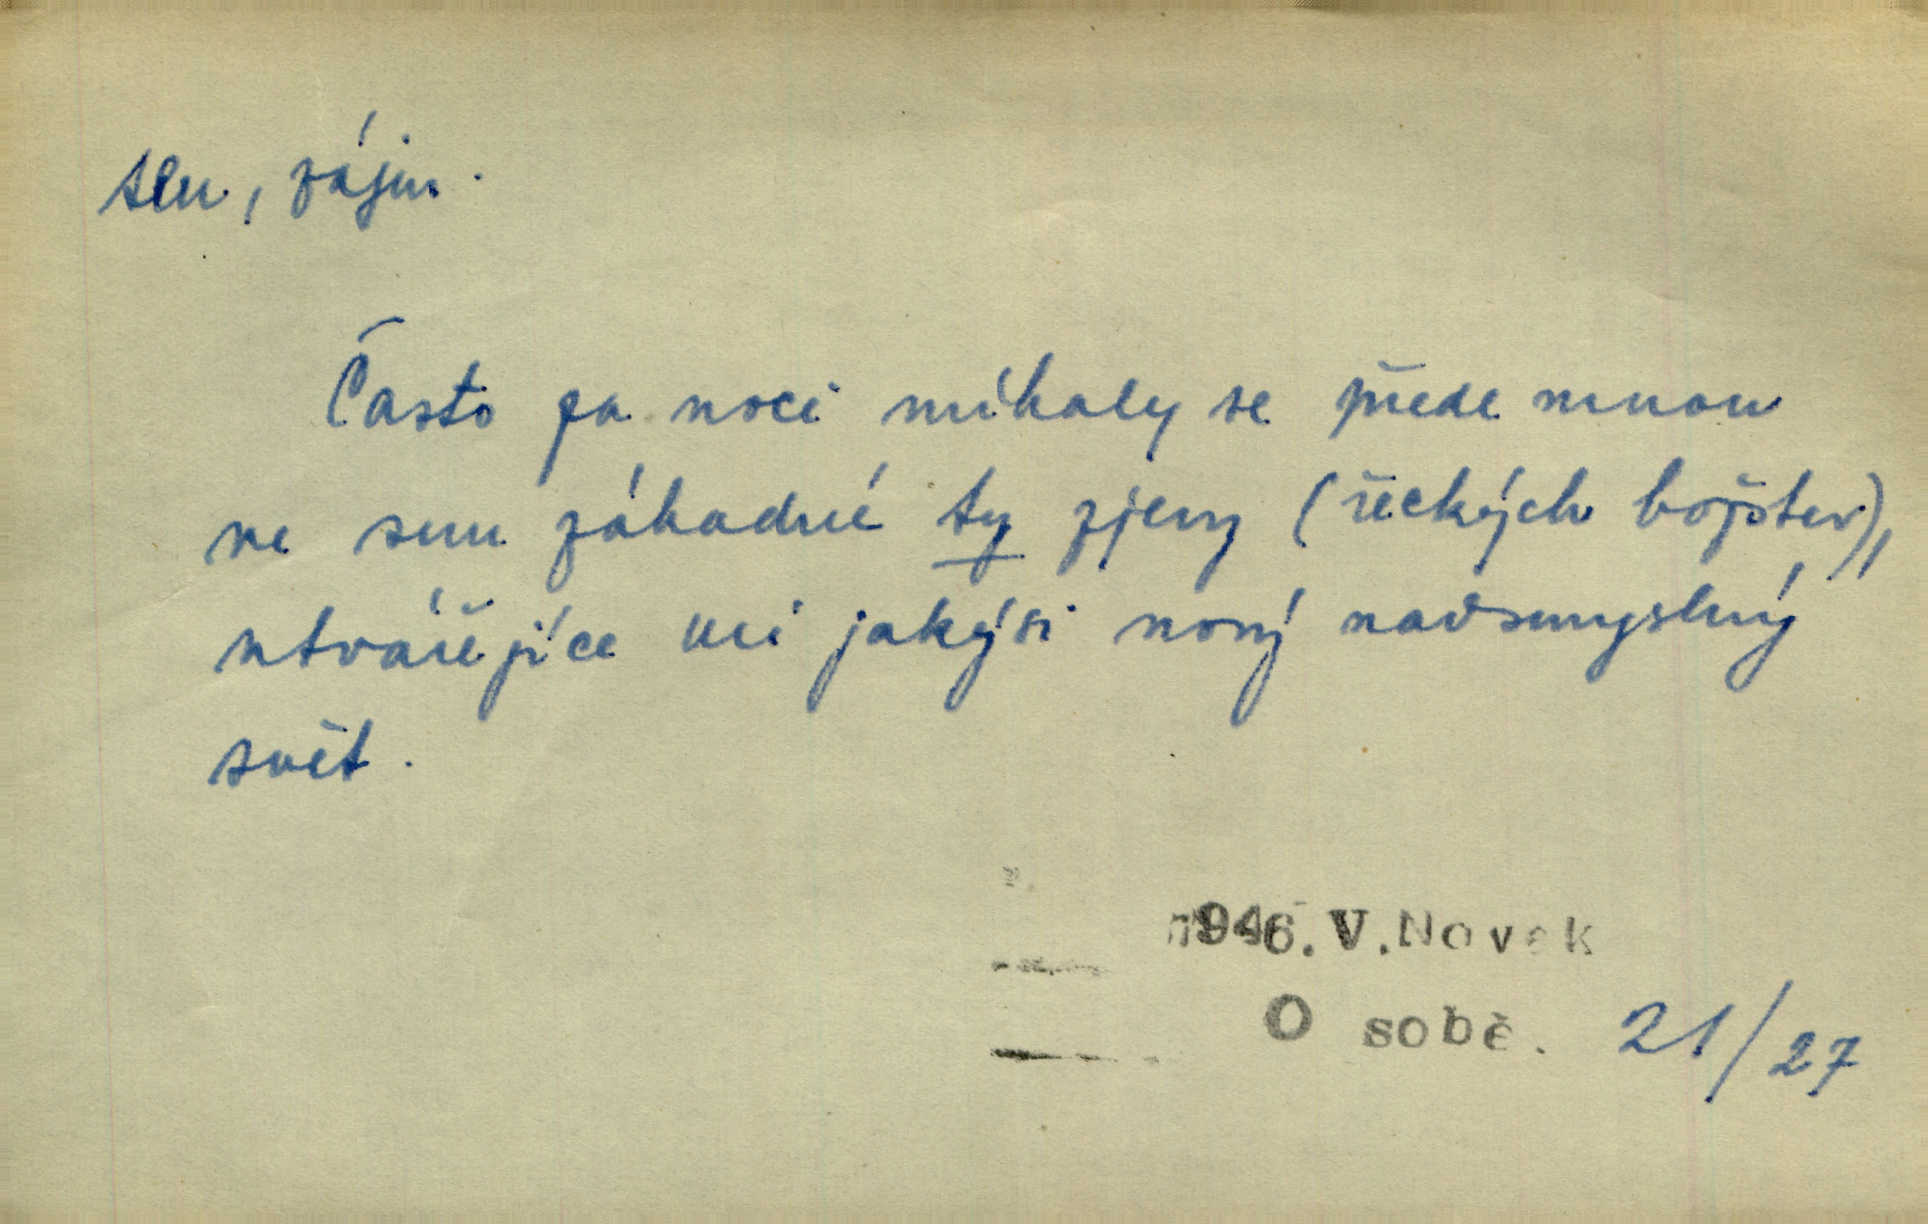 ten, zájm.
Často za noci míhaly se přede mnou
ve snu záhadné ty zjevy (řeckých božstev),
utvářejíce mi jakýsi nový nadsmyslný
svět.
1946. V. Novák
O sobě. 21/27